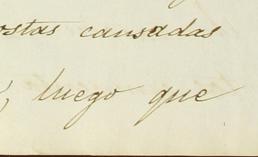 ostas causadas
, luego que